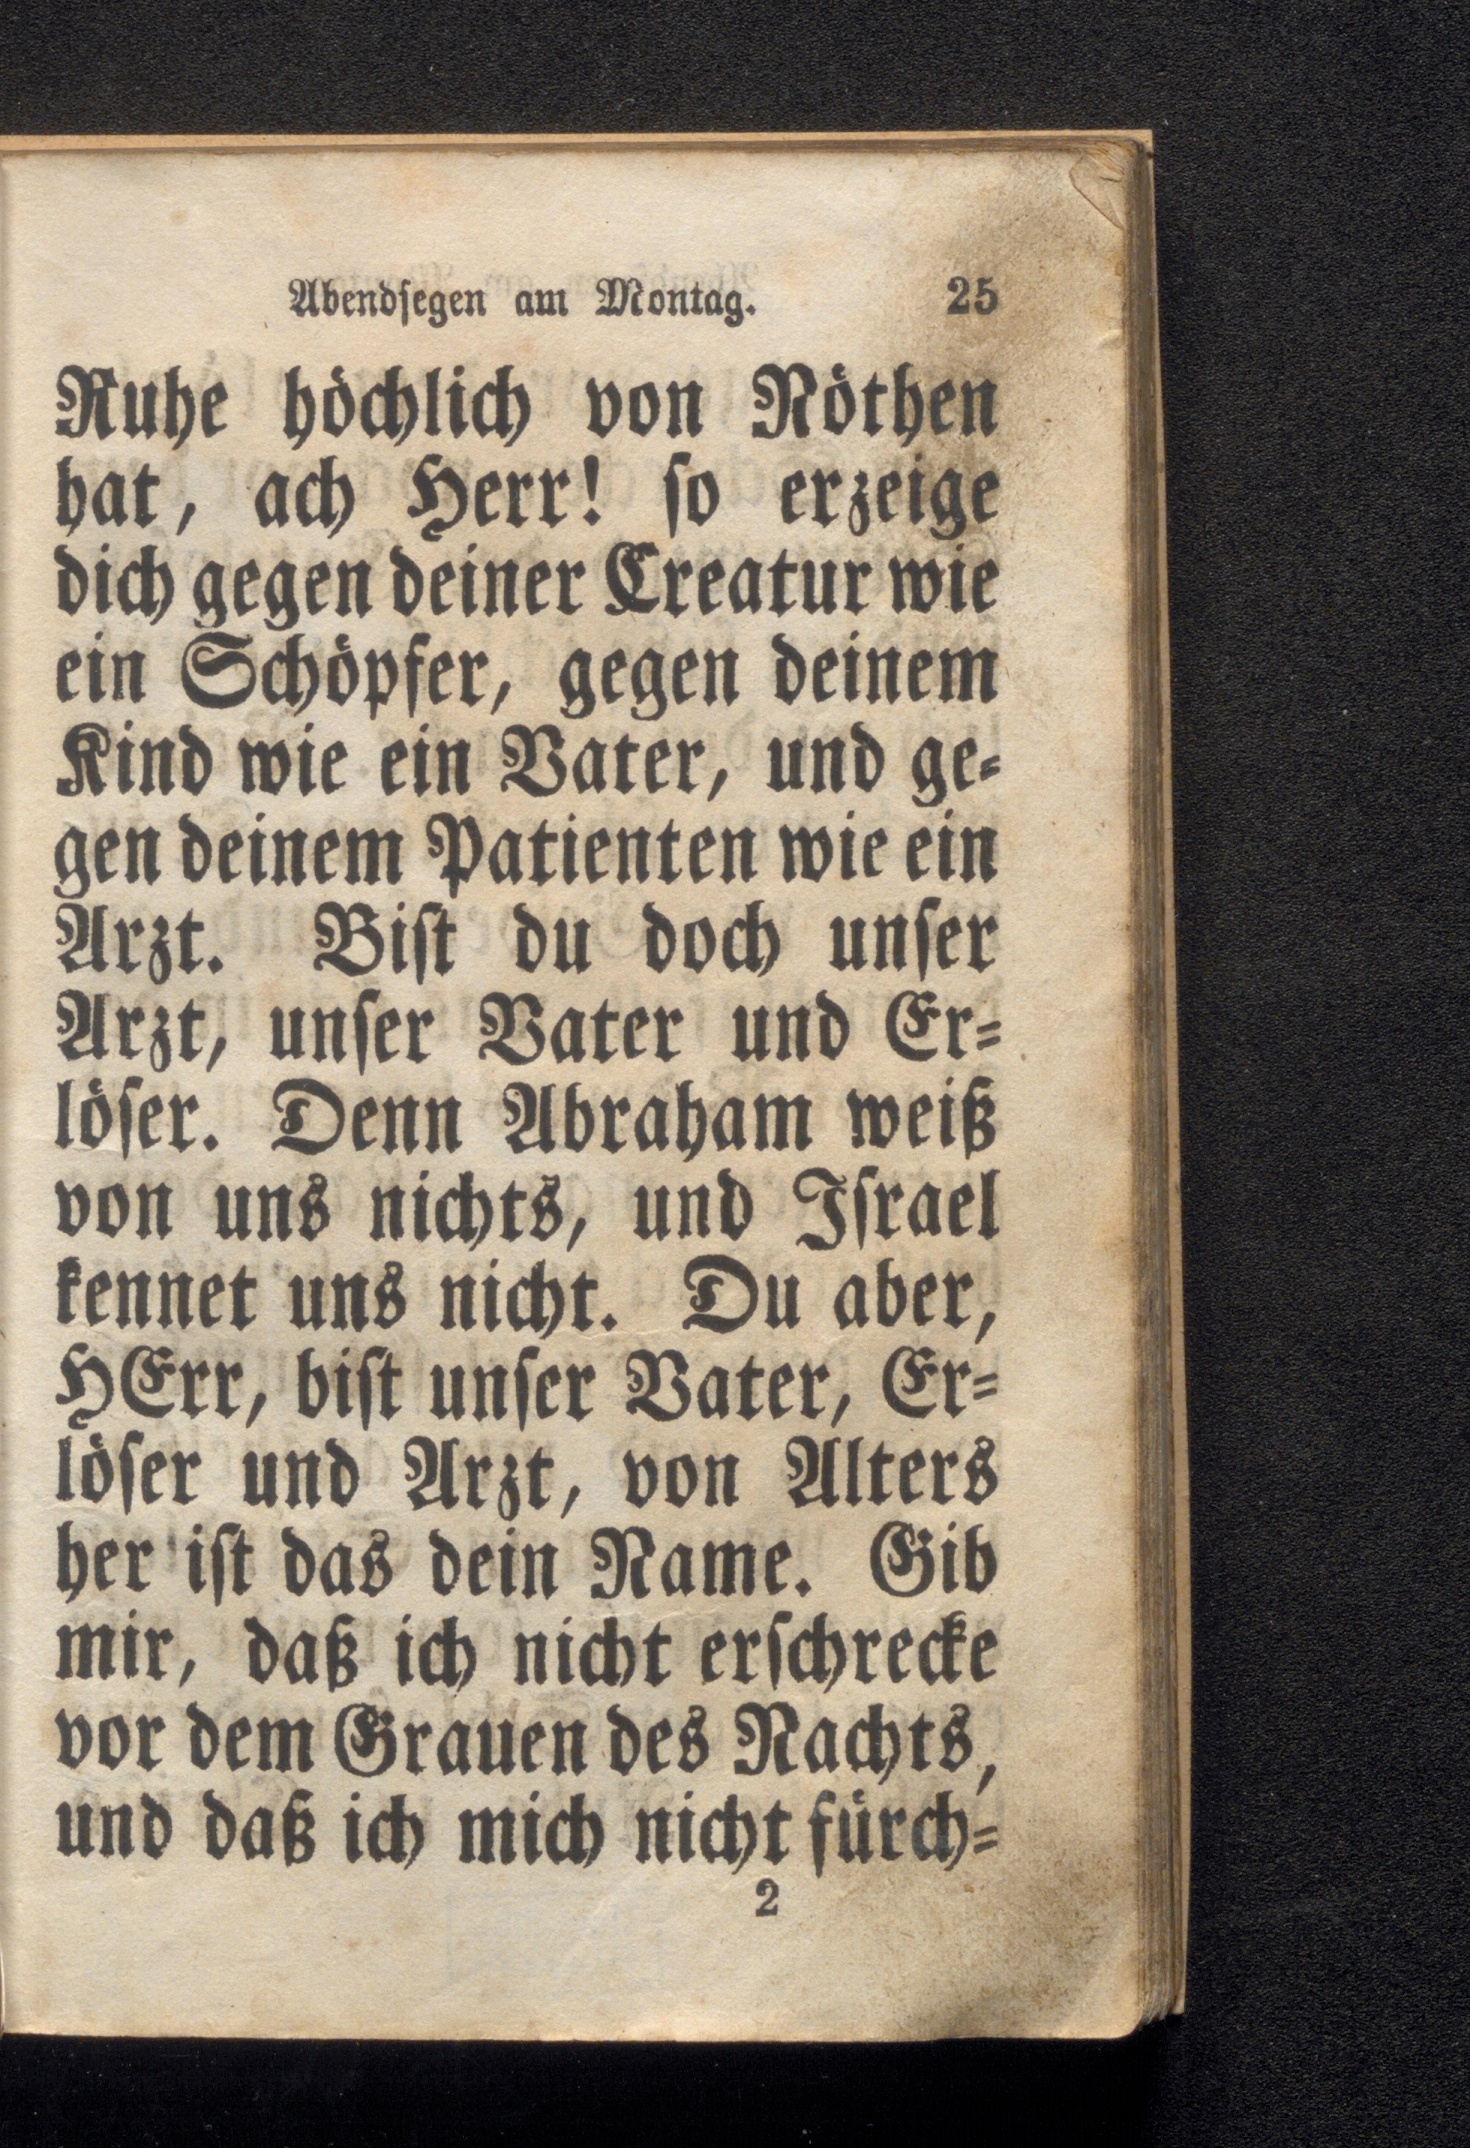 Abendſegen am Montag. 25
Ruhe höchlich von Nöthen
hat, ach Herr! ſo erzeige
dich gegen deiner Creatur wie
ein Schöpfer, gegen deinem
Kind wie ein Vater, und ge⸗
gen deinem Patienten wie ein
Arzt. Biſt du doch unſer
Arzt, unſer Vater und Er⸗
löſer. Denn Abraham weiß
von uns nichts, und Iſrael
kennet uns nicht. Du aber,
HErr, biſt unſer Vater, Er⸗
löſer und Arzt, von Alters
her iſt das dein Name. Gib
mir, daß ich nicht erſchrecke
vor dem Grauen des Nachts,
und daß ich mich nicht fürch⸗
2